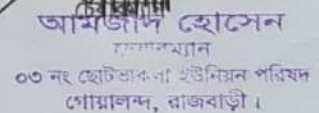 আমজাদ হোসেন
চেয়ারম্যান
০৩ নং ছোটভাকলা ইউনিয়ন পরিষদ
গোয়ালন্দ, রাজবাড়ী।